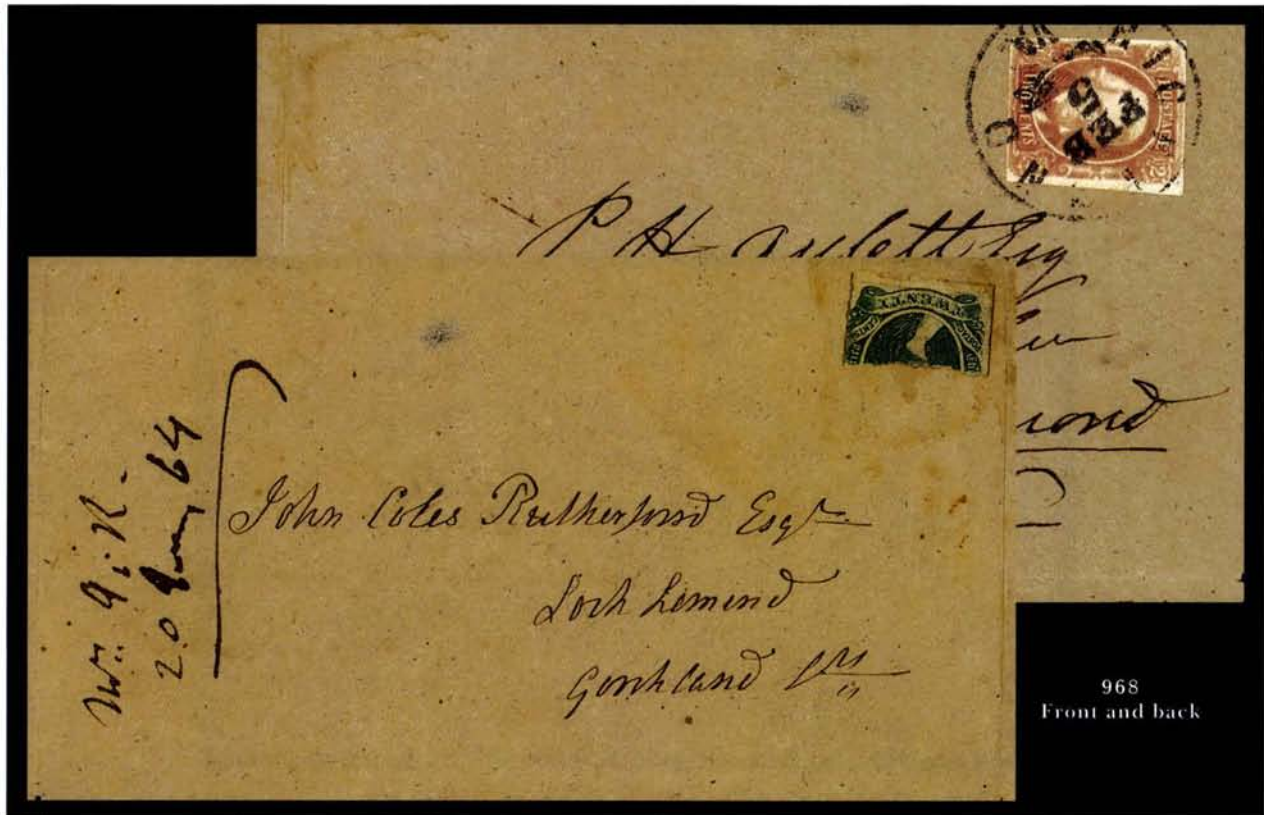 FEB
5
POSTAGE
TWO CENTS
P H Aulett Esq
mond
TWENTY
Wm. A. R.
20 Jany 64
John Coles Rutherfoord Esqr
Loch Lomond
Goochland
968
Front and back